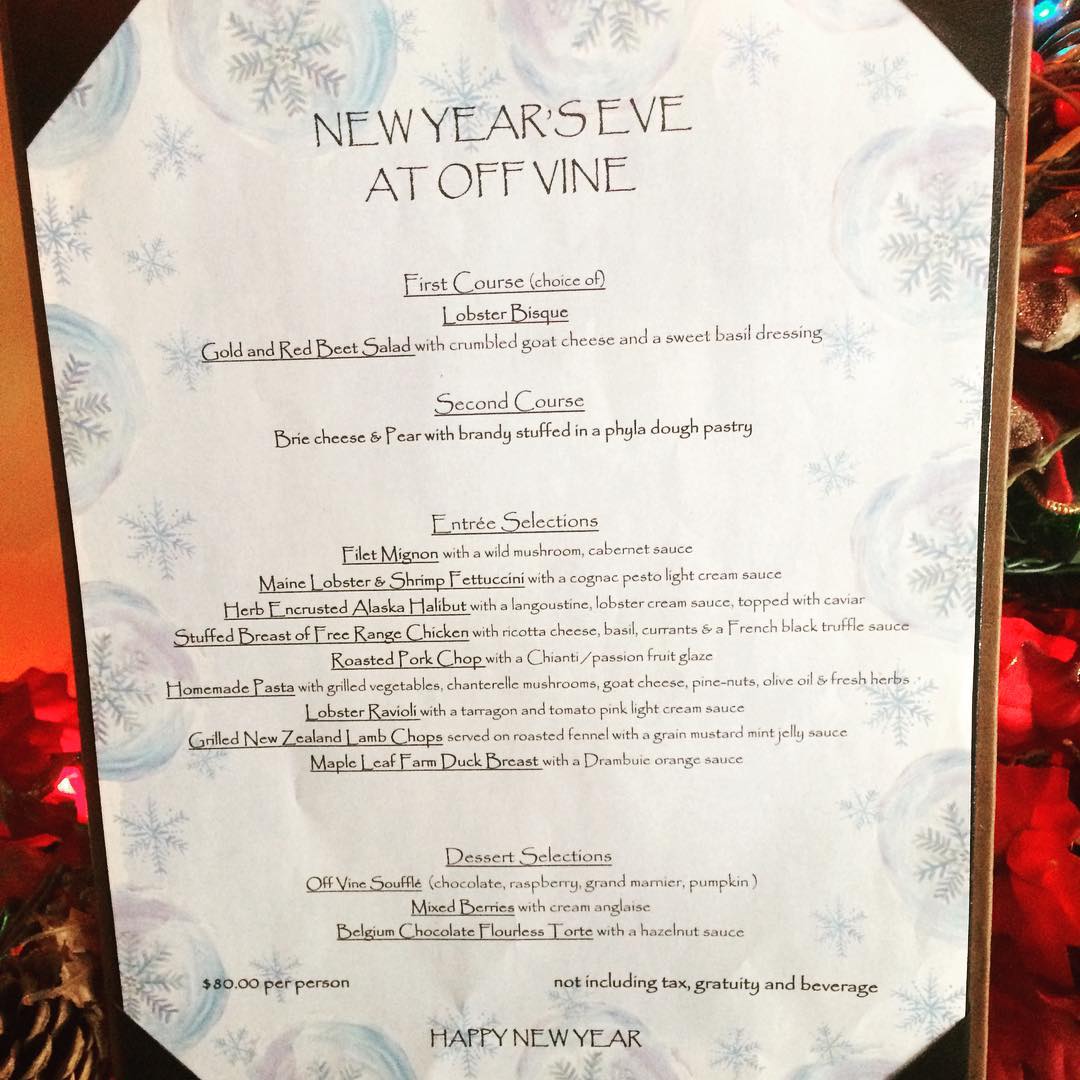 NEW YEAR'S EVE
AT OFF VINE
First Course (choice of)
Lobster Bisque
Gold and Red Beet Salad with crumbled goat cheese and a sweet basil dressing
Second Course
Brie cheese & Pear with brandy stuffed in a phyla dough pastry
Entrée Selections
Filet Mignon with a wild mushroom, cabernet sauce
Maine Lobster & Shrimp Fettuccini with a cognac pesto light cream sauce
Herb Encrusted Alaska Halibut with a langoustine, lobster cream sauce, topped with caviar
Stuffed Breast of Free Range Chicken with ricotta cheese, basil, currants & a French black truffle sauce
Roasted Pork Chop with a Chianti/passion fruit glaze
Homemade Pasta with grilled vegetables, chanterelle mushrooms, goat cheese, pine-nuts, olive oil & fresh herbs
Lobster Ravioli with a tarragon and tomato pink light cream sauce
Grilled New Zealand Lamb Chops served on roasted fennel with a grain mustard mint jelly sauce
Maple Leaf Farm Duck Breast with a Drambuie orange sauce
Dessert Selections
Off Vine Soufflé (chocolate, raspberry, grand marnier, pumpkin )
Mixed Berries with cream anglaise
Belgium Chocolate Flourless Torte with a hazelnut sauce
$80.00 per person not including tax, gratuity and beverage
HAPPY NEW YEAR